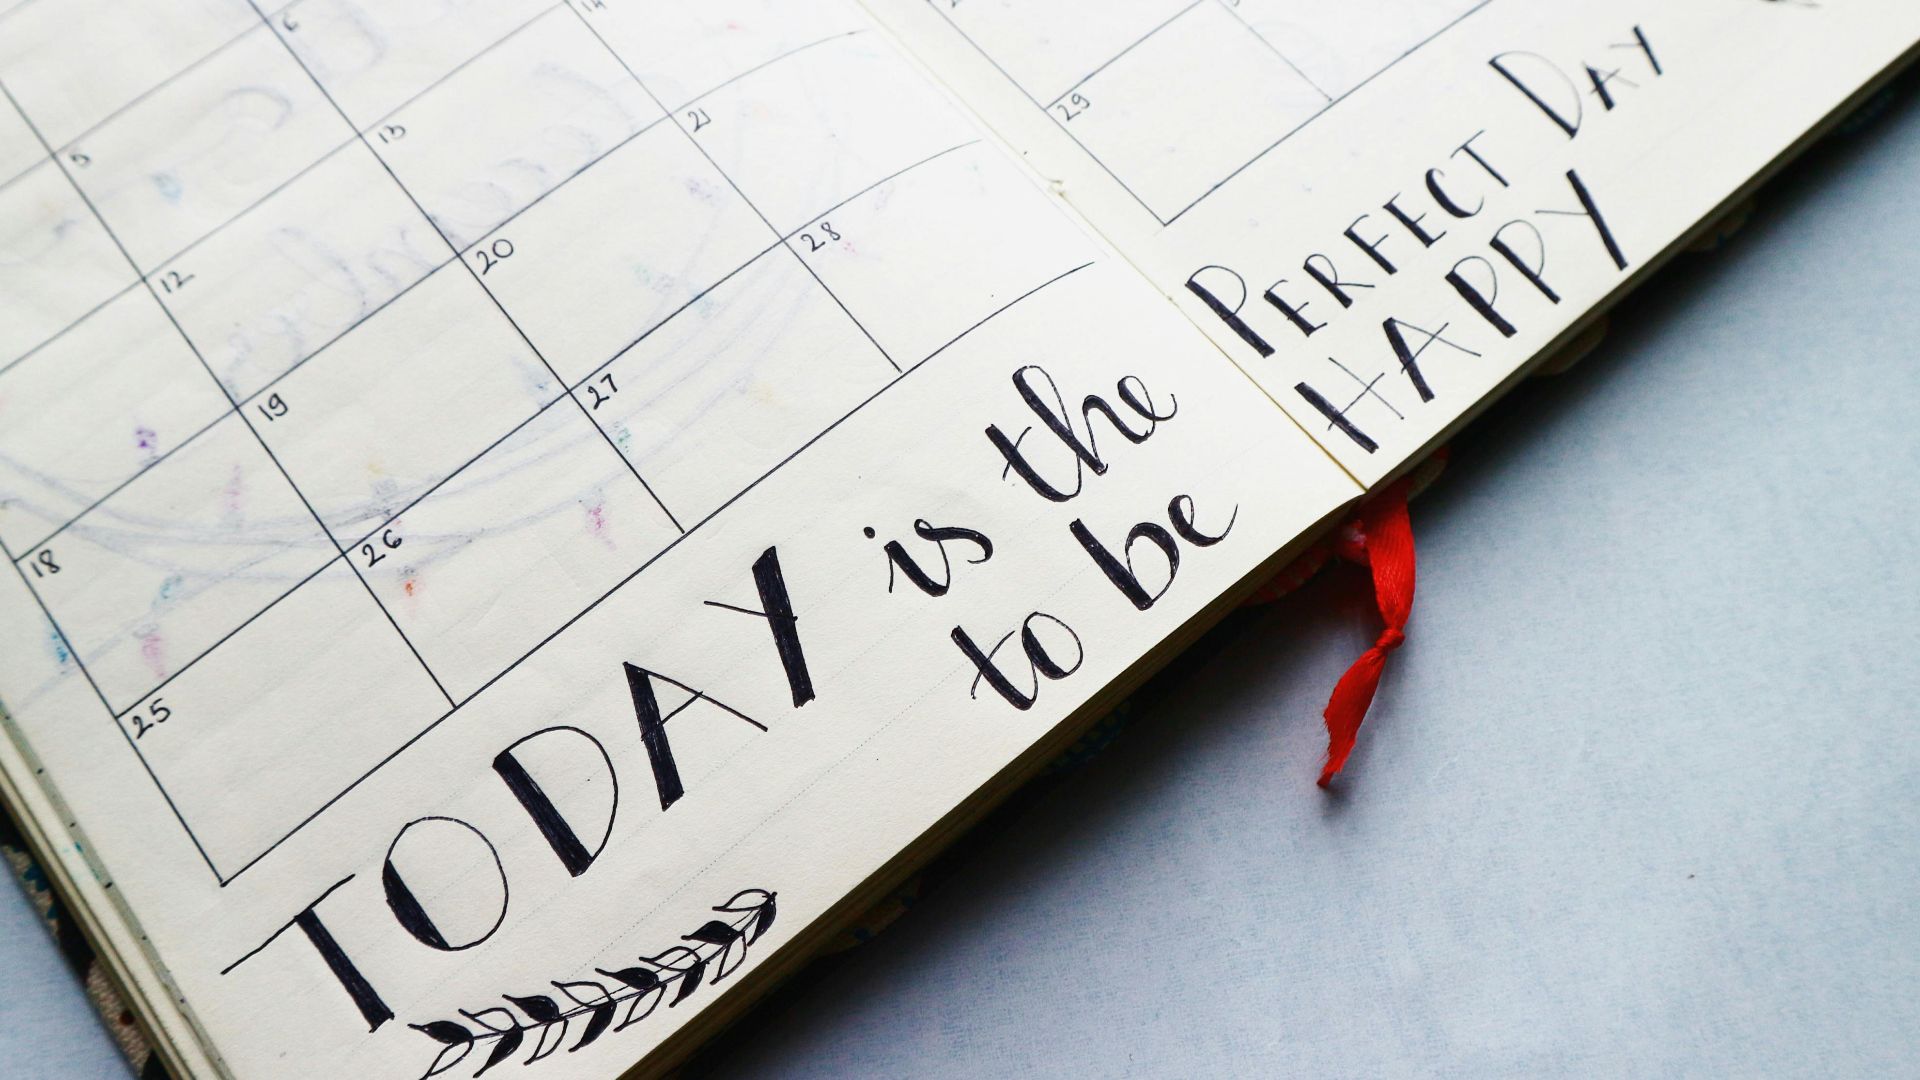 6 14
5 13 21 29
12 20 28
19 27
18 26
25
TODAY is the PERFECT DAY
to be HAPPY